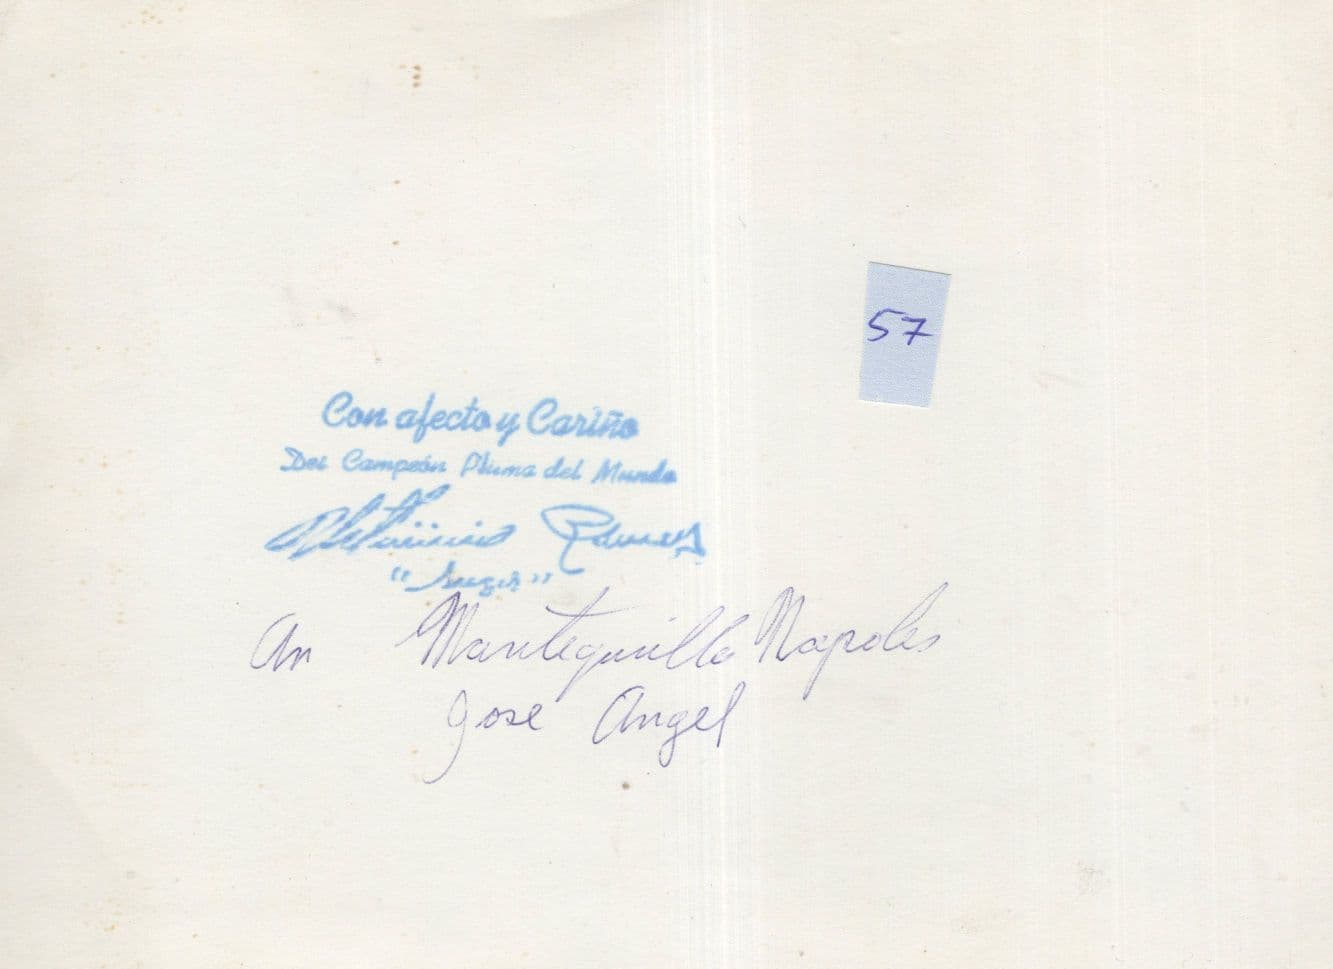 57
Con afecto y Cariño
Del Campeón Pluma del Mundo
Ultiminio Ramos
"Sugar"
An Mantequilla Napoles
Jose Angel